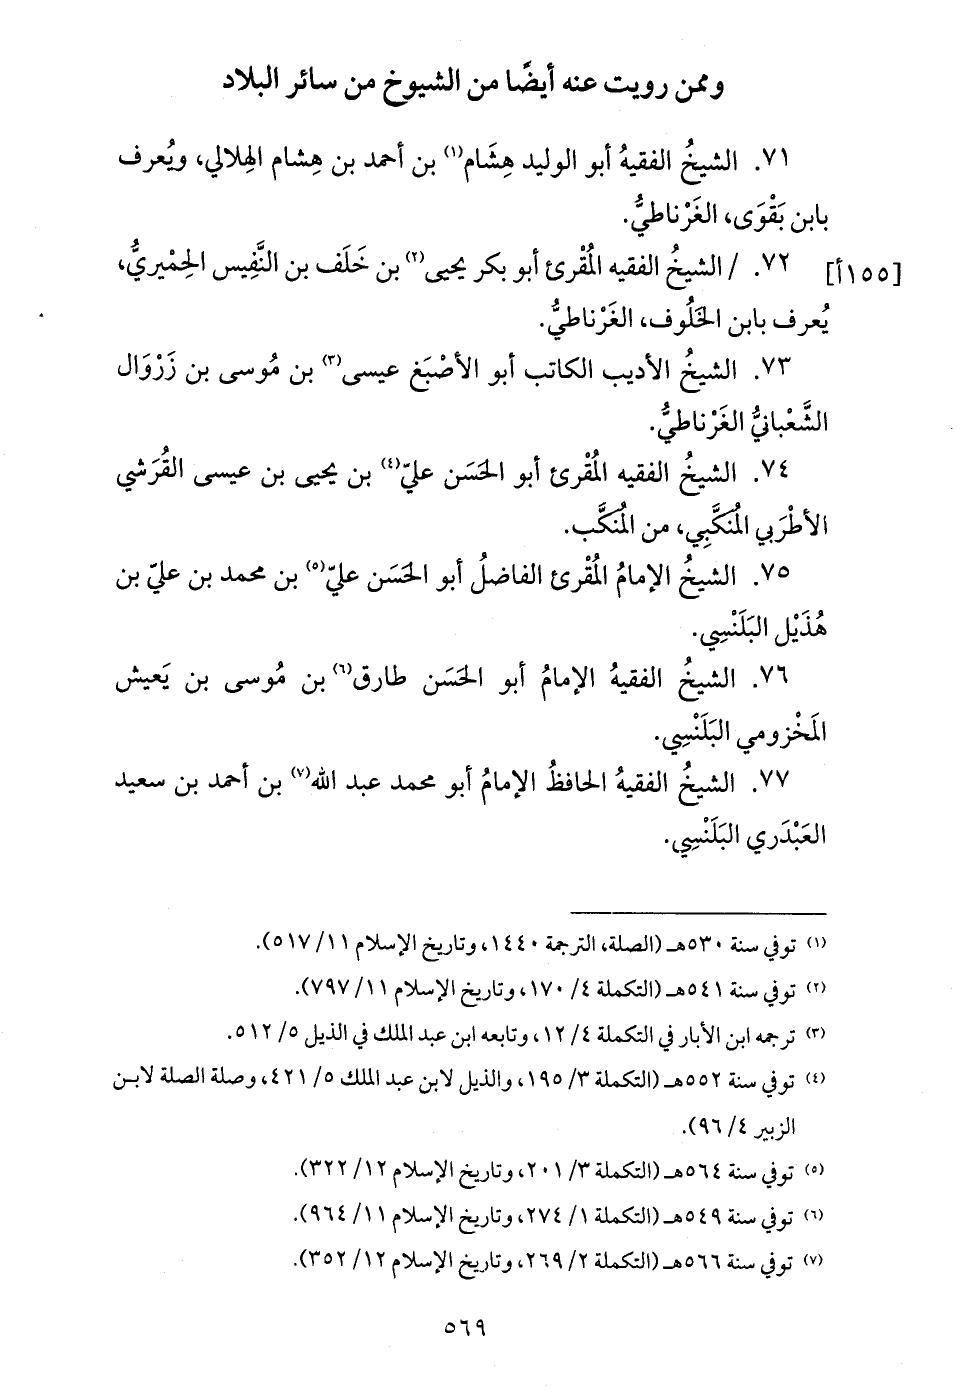 وممن رويت عنه أيضًا من الشيوخ من سائر البلاد
٧١. الشيخُ الفقيهُ أبو الوليد هِشَام(١) بن أحمد بن هِشام الهِلالي، ويُعرف
بابن بَقْوَى، الغَرْناطيُّ.
[١٥٥أ] ٧٢. / الشيخُ الفقيه المُقرئ أبو بكر يحيى(٢) بن خَلَف بن النَّفِيس الحِمْيريُّ،
يُعرف بابن الخَلُوف، الغَرْناطيُّ.
٧٣. الشيخُ الأديب الكاتب أبو الأصْبَغ عيسى(٣) بن مُوسى بن زَرْوَال
الشَّعْبانيُّ الغَرْناطيُّ.
٧٤. الشيخُ الفقيه المُقْرئ أبو الحَسَن عليّ(٤) بن يحيى بن عيسى القُرَشي
الأطْرَبي المُنَكَّبِي، من المُنَكَّب.
٧٥. الشيخُ الإمامُ المُقْرئ الفاضلُ أبو الحَسَن عليّ(٥) بن محمد بن عليّ بن
هُذَيْل البَلَنْسِي.
٧٦. الشيخُ الفقيهُ الإمامُ أبو الحَسَن طارق(٦) بن مُوسى بن يَعيش
المَخْزومي البَلَنْسِي.
٧٧. الشيخُ الفقيهُ الحافظُ الإمامُ أبو محمد عبد الله(٧) بن أحمد بن سعيد
العَبْدَري البَلَنْسِي.
(١) توفي سنة ٥٣٠هـ (الصلة، الترجمة ١٤٤٠، وتاريخ الإسلام ١١/ ٥١٧).
(٢) توفي سنة ٥٤١هـ (التكملة ٤/ ١٧٠، وتاريخ الإسلام ١١/ ٧٩٧).
(٣) ترجمه ابن الأبار في التكملة ٤/ ١٢، وتابعه ابن عبد الملك في الذيل ٥/ ٥١٢.
(٤) توفي سنة ٥٥٢هـ (التكملة ٣/ ١٩٥، والذيل لابن عبد الملك ٥/ ٤٢١، وصلة الصلة لابن
الزبير ٤/ ٩٦).
(٥) توفي سنة ٥٦٤هـ (التكملة ٣/ ٢٠١، وتاريخ الإسلام ١٢/ ٣٢٢).
(٦) توفي سنة ٥٤٩هـ (التكملة ١/ ٢٧٤، وتاريخ الإسلام ١١/ ٩٦٤).
(٧) توفي سنة ٥٦٦هـ (التكملة ٢/ ٢٦٩، وتاريخ الإسلام ١٢/ ٣٥٢).
٥٦٩